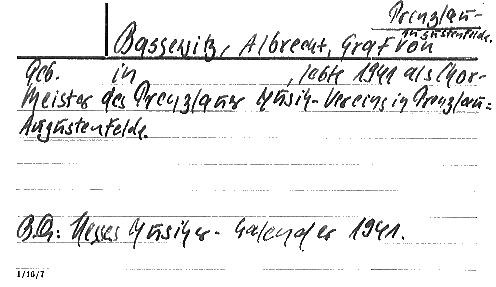 Prenzlau-
Augustenfelde.
Bassewitz, Albrecht, Graf von
Geb. in , lebte 1941 als Chor-
meister des Prenzlauer Musik-Vereins in Prenzlau=
Augustenfelde.
B.Qu: Hesses Musiker-Kalender 1941.
1/16/7